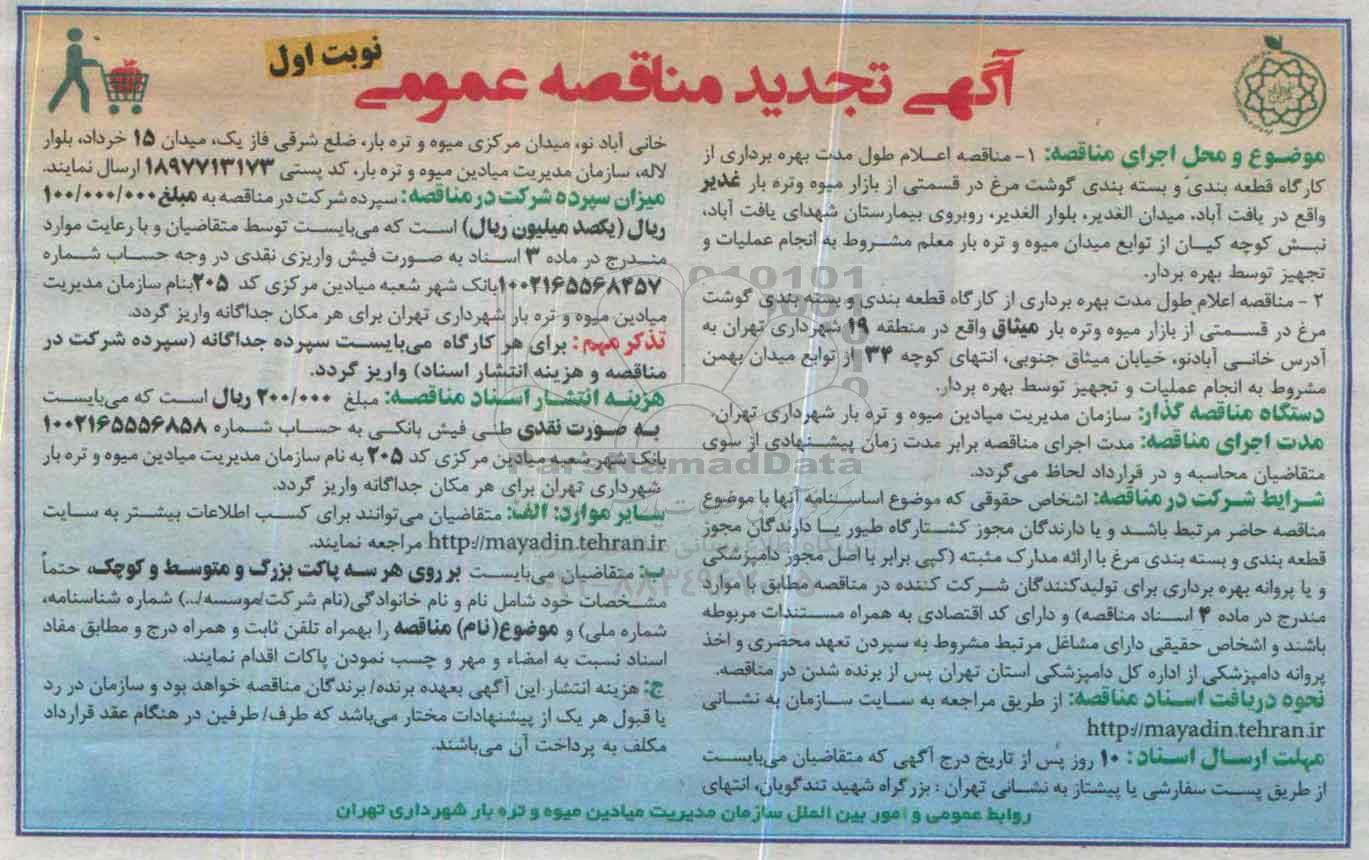 آگهی تجدید مناقصه عمومی
نوبت اول
موضوع و محل اجرای مناقصه: ۱- مناقصه اعلام طول مدت بهره برداری از
کارگاه قطعه بندی و بسته بندی گوشت مرغ در قسمتی از بازار میوه وتره بار غدیر
واقع در یافت آباد، میدان الغدیر، بلوار الغدیر، روبروی بیمارستان شهدای یافت آباد،
نبش کوچه کیان از توابع میدان میوه و تره بار معلم مشروط به انجام عملیات و
تجهیز توسط بهره بردار.
۲ - مناقصه اعلام طول مدت بهره برداری از کارگاه قطعه بندی و بسته بندی گوشت
مرغ در قسمتی از بازار میوه وتره بار میثاق واقع در منطقه ۱۹ شهرداری تهران به
آدرس خانی آبادنو، خیابان میثاق جنوبی، انتهای کوچه ۳۴ از توابع میدان بهمن
مشروط به انجام عملیات و تجهیز توسط بهره بردار.
دستگاه مناقصه گذار: سازمان مدیریت میادین میوه و تره بار شهرداری تهران.
مدت اجرای مناقصه: مدت اجرای مناقصه برابر مدت زمان پیشنهادی از سوی
متقاضیان محاسبه و در قرارداد لحاظ می‌گردد.
شرایط شرکت در مناقصه: اشخاص حقوقی که موضوع اساسنامه آنها با موضوع
مناقصه حاضر مرتبط باشد و یا دارندگان مجوز کشتارگاه طیور یا دارندگان مجوز
قطعه بندی و بسته بندی مرغ با ارائه مدارک مثبته (کپی برابر با اصل مجوز دامپزشکی
و یا پروانه بهره برداری برای تولیدکنندگان شرکت کننده در مناقصه مطابق با موارد
مندرج در ماده ۴ اسناد مناقصه) و دارای کد اقتصادی به همراه مستندات مربوطه
باشند و اشخاص حقیقی دارای مشاغل مرتبط مشروط به سپردن تعهد محضری و اخذ
پروانه دامپزشکی از اداره کل دامپزشکی استان تهران پس از برنده شدن در مناقصه.
نحوه دریافت اسناد مناقصه: از طریق مراجعه به سایت سازمان به نشانی
http://mayadin.tehran.ir
مهلت ارسال اسناد: ۱۰ روز پس از تاریخ درج آگهی که متقاضیان می‌بایست
از طریق پست سفارشی یا پیشتاز به نشانی تهران : بزرگراه شهید تندگویان، انتهای
خانی آباد نو، میدان مرکزی میوه و تره بار، ضلع شرقی فاز یک، میدان ۱۵ خرداد، بلوار
لاله، سازمان مدیریت میادین میوه و تره بار، کد پستی ۱۸۹۷۷۱۳۱۷۳ ارسال نمایند.
میزان سپرده شرکت در مناقصه: سپرده شرکت در مناقصه به مبلغ ۱۰۰/۰۰۰/۰۰۰
ریال (یکصد میلیون ریال) است که می‌بایست توسط متقاضیان و با رعایت موارد
مندرج در ماده ۳ اسناد به صورت فیش واریزی نقدی در وجه حساب شماره
بانک شهر شعبه میادین مرکزی کد ۲۰۵ بنام سازمان مدیریت
میادین میوه و تره بار شهرداری تهران برای هر مکان جداگانه واریز گردد.
تذکر مهم: برای هر کارگاه می‌بایست سپرده جداگانه (سپرده شرکت در
مناقصه و هزینه انتشار اسناد) واریز گردد.
هزینه انتشار اسناد مناقصه: مبلغ ۲۰۰/۰۰۰ ریال است که می‌بایست
به صورت نقدی طی فیش بانکی به حساب شماره ۱۰۰۲۱۶۵۵۵۶۸۵۸
بانک شهر شعبه میادین مرکزی کد ۲۰۵ به نام سازمان مدیریت میادین میوه و تره بار
شهرداری تهران برای هر مکان جداگانه واریز گردد.
سایر موارد: الف: متقاضیان می‌توانند برای کسب اطلاعات بیشتر به سایت
http://mayadin.tehran.ir مراجعه نمایند.
ب: متقاضیان می‌بایست بر روی هر سه پاکت بزرگ و متوسط و کوچک، حتماً
مشخصات خود شامل نام و نام خانوادگی(نام شرکت/موسسه/..) شماره شناسنامه،
شماره ملی) و موضوع(نام) مناقصه را بهمراه تلفن ثابت و همراه درج و مطابق مفاد
اسناد نسبت به امضاء و مهر و چسب نمودن پاکات اقدام نمایند.
ج: هزینه انتشار این آگهی بعهده برنده/ برندگان مناقصه خواهد بود و سازمان در رد
یا قبول هر یک از پیشنهادات مختار می‌باشد که طرف/ طرفین در هنگام عقد قرارداد
مکلف به پرداخت آن می‌باشند.
روابط عمومی و امور بین الملل سازمان مدیریت میادین میوه و تره بار شهرداری تهران
ParsNamadData